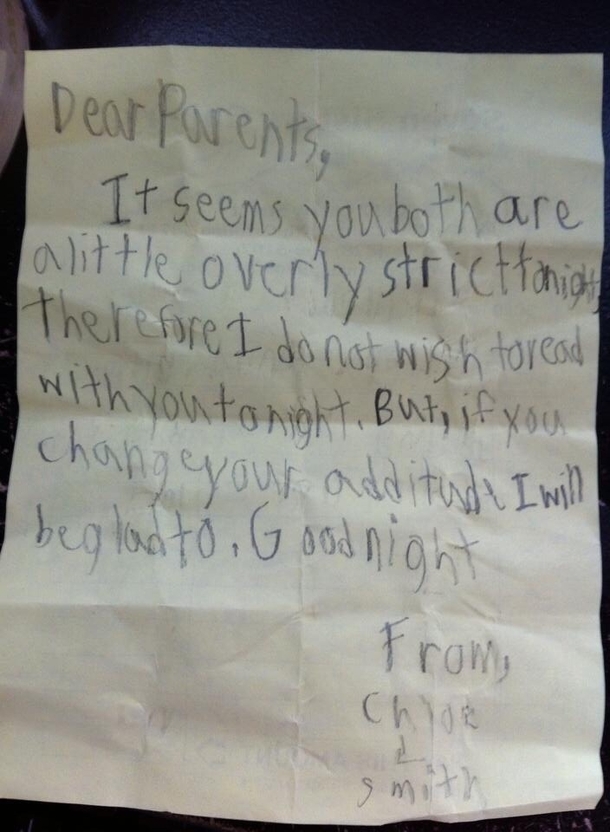 Dear Parents,
It seems you both are
a little overly strict tonight,
therefore I do not wish to read
with you tonight. But, if you
change your additude I will
be glad to. Good night
From,
Chloe
L
Smith